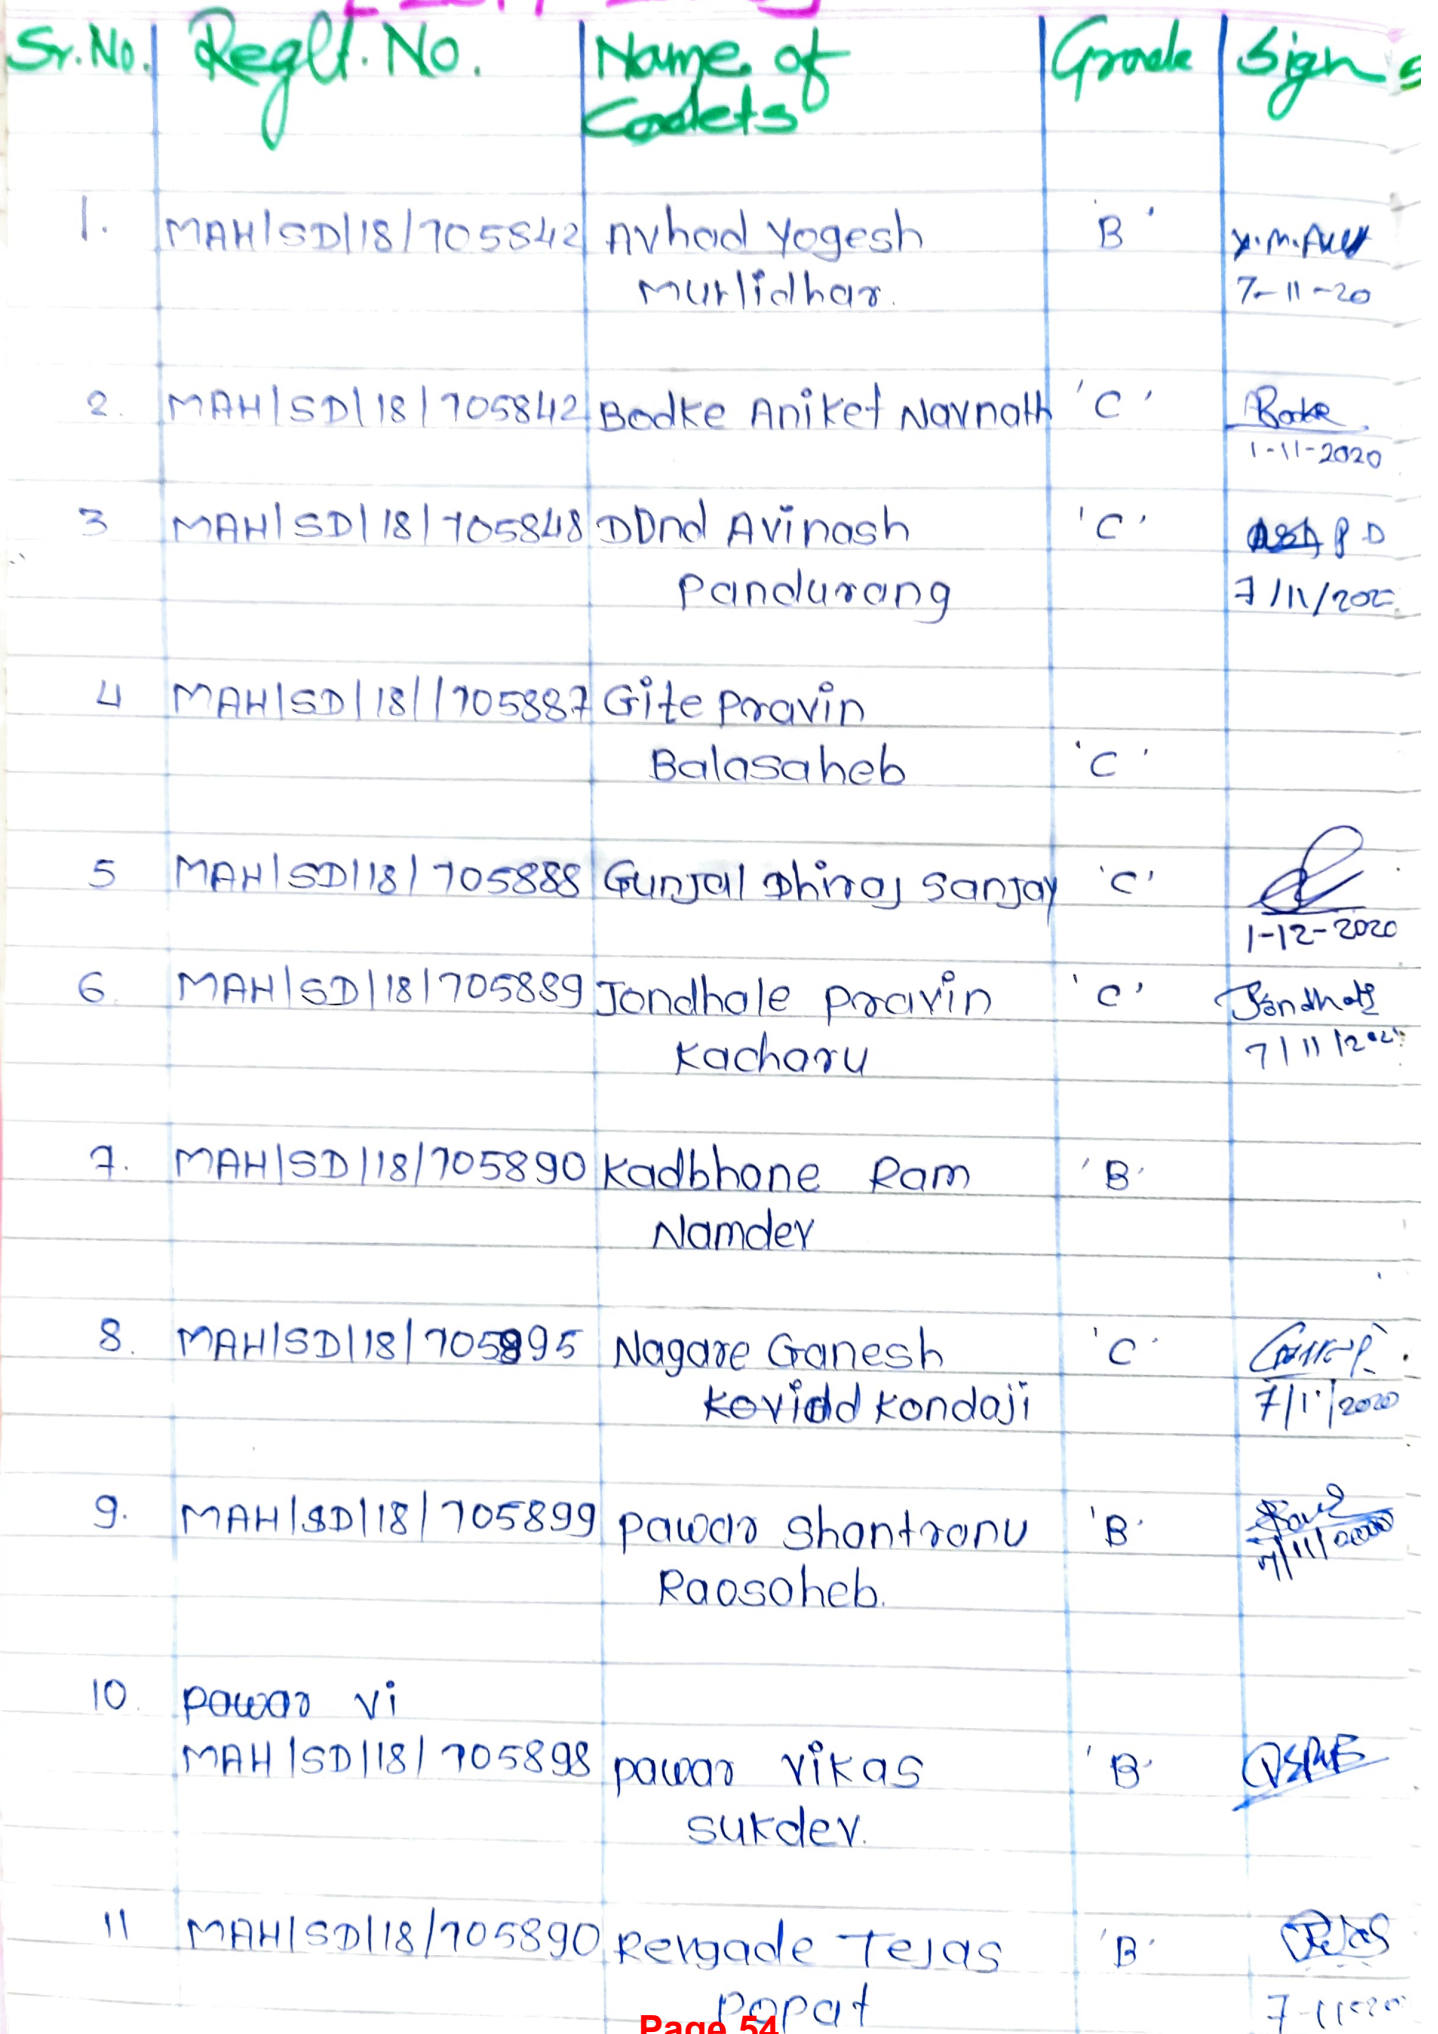 Sr.No. Reglt. No. Name of Grade Sign s
Cadets
1. MAH/SD/18/705842 Avhad Yogesh 'B'
Murlidhar. 7-11-20
2. MAH/SD/18/705842 Bodke Aniket Navnath 'C' Bodke
1-11-2020
3 MAH/SD/18/705848 DDnd Avinash 'C' P D
Pandurang 7/11/202
4 MAH/SD/18//705887 Gite Pravin
Balasaheb 'C'
5 MAH/SD/18/705888 Gunjal Dhiraj Sanjay 'C'
1-12-2020
6. MAH/SD/18/705889 Jondhale Pravin 'C' Jondhale
Kacharu 7/11/202
7. MAH/SD/18/705890 Kadbhane Ram 'B'
Namdev
8. MAH/SD/18/705895 Nagare Ganesh 'C'
Kondaji 7/11/2020
9. MAH/SD/18/705899 Pawar Shantranu 'B'
Raosaheb. 7/11/2020
10. Pawar Vi
MAH/SD/18/705898 Pawar Vikas 'B'
Sukdev.
11 MAH/SD/18/705890 Revgade Tejas 'B' Tejas
Popat 7-11-2020
Page 54